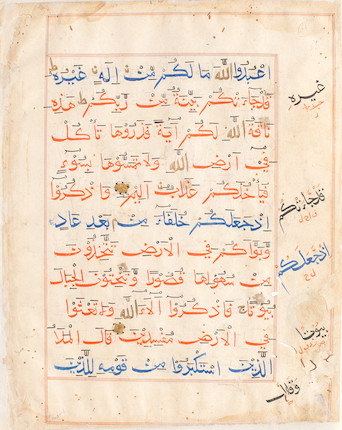 اعْبُدُوا اللَّهَ مَا لَكُم مِّنْ إِلَٰهٍ غَيْرُهُ
قَدْ جَاءَتْكُم بَيِّنَةٌ مِّن رَّبِّكُمْ هَٰذِهِ
نَاقَةُ اللَّهِ لَكُمْ آيَةً فَذَرُوهَا تَأْكُلْ
فِي أَرْضِ اللَّهِ وَلَا تَمَسُّوهَا بِسُوءٍ
فَيَأْخُذَكُمْ عَذَابٌ أَلِيمٌ وَاذْكُرُوا
إِذْ جَعَلَكُمْ خُلَفَاءَ مِن بَعْدِ عَادٍ
وَبَوَّأَكُمْ فِي الْأَرْضِ تَتَّخِذُونَ
مِن سُهُولِهَا قُصُورًا وَتَنْحِتُونَ الْجِبَالَ
بُيُوتًا فَاذْكُرُوا آلَاءَ اللَّهِ وَلَا تَعْثَوْا
فِي الْأَرْضِ مُفْسِدِينَ قَالَ الْمَلَأُ
الَّذِينَ اسْتَكْبَرُوا مِن قَوْمِهِ لِلَّذِينَ
غيره
قد جاءتكم
اذ جعلكم
بيوتا
وقال